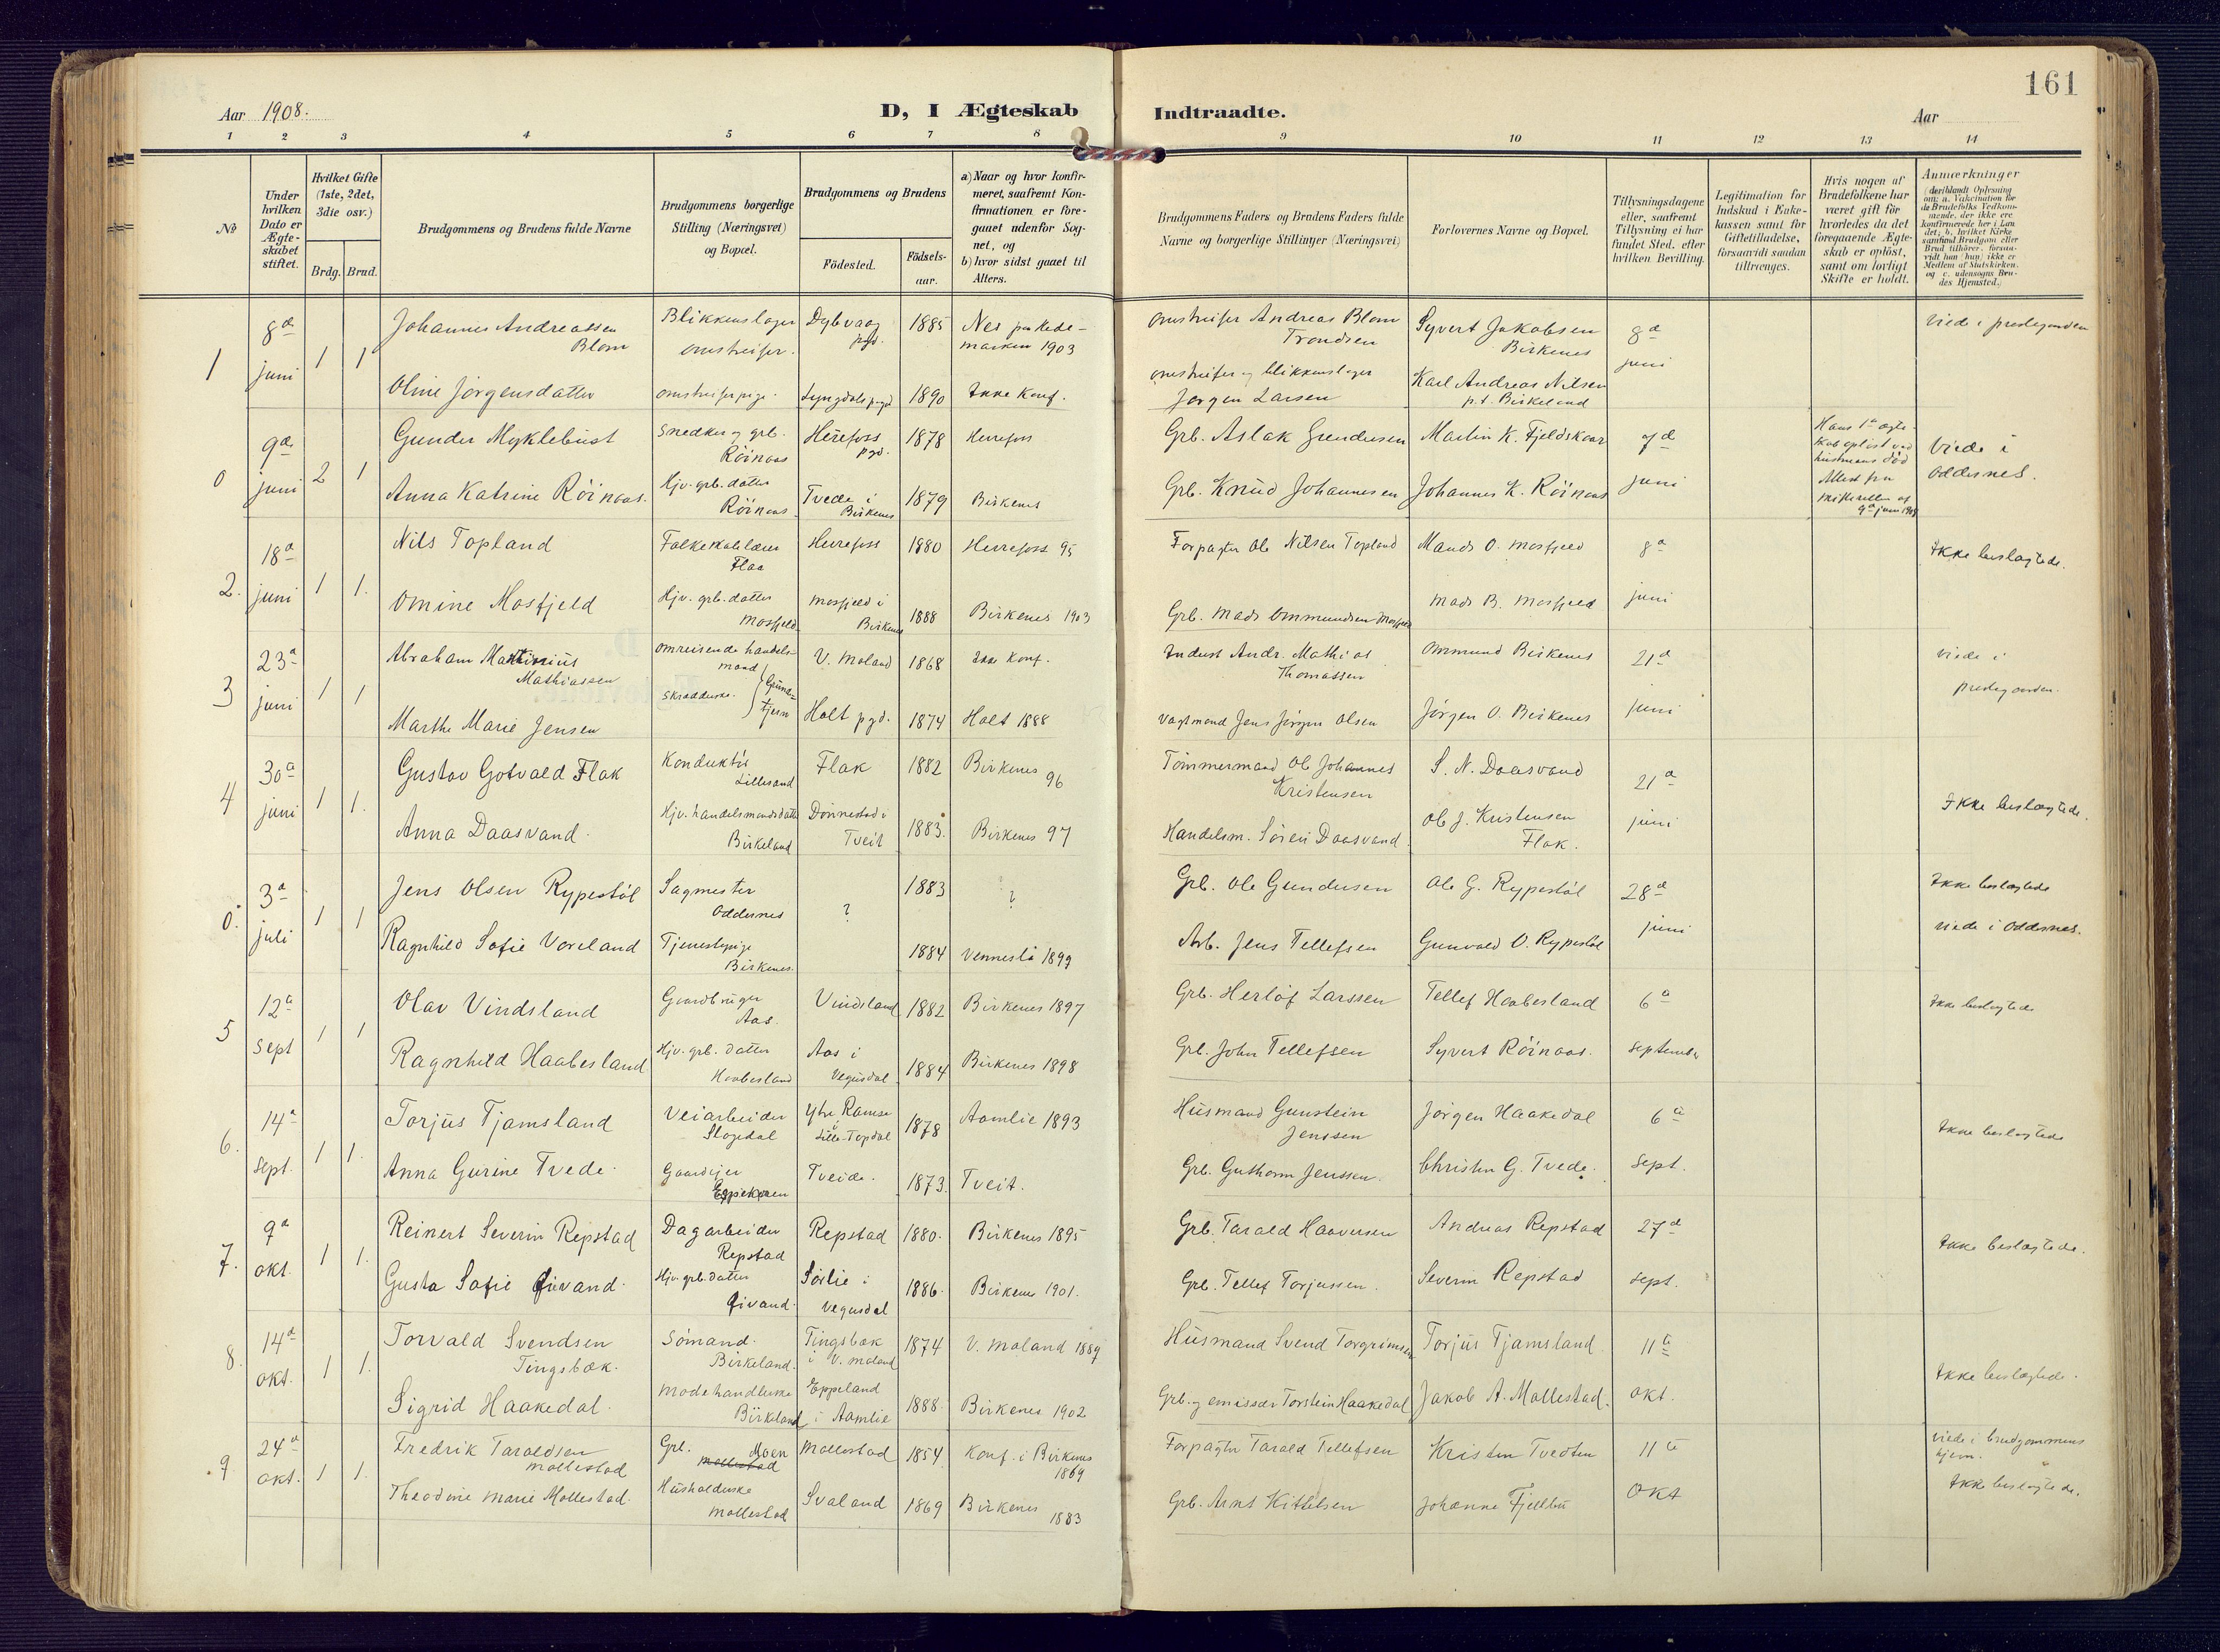 161
Aar 1908.
D, I Ægteskab
Indtraadte.
Aar
1 2 3 4 5 6 7 8 9 10 11 12 13 14
No
Under
hvilken
Dato er
Ægte-
skabet
stiftet.
Hvilket Gifte
(1ste, 2det,
3die osv.)
Brdg. Brud.
Brudgommens og Brudens fulde Navne
Brudgommens borgerlige
Stilling (Næringsvei)
og Bopæl.
Brudgommens og Brudens
Födested.
Födsels-
aar.
a) Naar og hvor konfir-
meret, saafremt Kon-
firmationen er fore-
gaaet udenfor Sog-
net, og
b) hvor sidst gaaet til
Alters.
Brudgommens Faders og Brudens Faders fulde
Navne og borgerlige Stillinger (Næringsvei)
Forlovernes Navne og Bopæl.
Tillysningsdagene
eller, saafremt
Tillysning ei har
fundet Sted, efter
hvilken Bevilling.
Legitimation for
Indskud i Enke-
kassen samt for
Giftetilladelse,
forsaavidt saadan
tiltrænges.
Hvis nogen af
Brudefolkene har
været gift för
hvorledes da det
foregaaende Ægte-
skab er oplöst,
samt om lovligt
Skifte er holdt.
Anmærkninger
(deriblandt Oplysning
om: a. Vakcination for
de Brudefolks Vedkom-
mende, der ikke ere
konfirmerede her i Lan
det; b. hvilket Kirke
samfund Brudgom eller
Brud tilhører, forsaa-
vidt han (hun) ikke er
Medlem af Statskirken,
og c. udensogns Bru-
des Hjemsted.)
1
8d
juni
1 1
Johannes Andreassen
Blom
Blikkenslager
omstreifer.
Dybvaag
pgd.
1885
Nes paa Hede-
marken 1903
Omstreifer Andreas Blom
Trondsen
Syvert Jakobsen
Birkenes
8d
juni
Viede i prestegaarden
Oline Jörgensdatter
omstreiferpige.
Lyngdals pgd
1890
Ikke Konf.
omstreifer og blikkenslager
Jørgen Larsen
Karl Andreas Nilsen
p.t. Birkeland
0
9de
juni
2 1
Gunder Myklebust
Snedker og grb.
Röinaas
Herefoss
pgd.
1878
Herrefoss
Grb. Aslak Gundersen
Martin K. Fjeldskaar
7d
juni
Hans 1ste ægte-
skab oplöst ved
hustruens död
Attest fra
skifteretten af
9d juni 1908
Viede i
Oddernes.
Anna Katrine Röinaas.
Hjv. grb. datter
Röinaas
Tvede i
Birkenes
1879
Birkenes
Grb. Knud Johannesen
Johannes K. Röinaas
2.
18d
juni
1 1.
Nils Topland
Folkeskolelærer
Flaa
Herrefoss
1880
Herrefoss 95
Forpagter Ole Nilsen Topland
Mands O. Mosfjeld
8d
juni
Ikke beslægtede.
Omine Mosfjeld
Hjv. grb. datter
Mosfjeld
Mosfjeld i
Birkenes
1888
Birkenes 1903
Grb. Mads Ommundsen Mosfjeld
Mads B. Mosfjeld
3
23d
juni
1 1
Abraham Martinius
Mathiassen
Omreisende handels-
mand
V. Moland
1868
Ikke Konf.
Indust Andr. Mathias
Thomassen
Ommund Birkenes
21d
juni
Viede i
prestegaarden.
Marthe Marie Jensen
Skrædderske.
Grims-
tjern
Holt pgd.
1874
Holt 1888
Vagtmand Jens Jörgen Olsen
Jörgen O. Birkenes
4
30d
juni
1 1.
Gustav Gotvald Flak
Konduktör
Lillesand
Flak
1882
Birkenes
96
Tømmermand Ole Johannes
Kristensen
S. N. Daasvand
21d
juni
Ikke beslægtede.
Anna Daasvand.
Hjv. handelsmandsdatter
Birkeland
Dönnestad i
Tveit
1883.
Birkenes 97
Handelsm. Sören Daasvand.
Ole J. Kristensen
Flak.
0.
3d
juli
1 1
Jens Olsen Rypestöl
Sagmester
Oddernes
?
1883
?
Grb. Ole Gundersen
Ole G. Rypestöl
28d
juni
Ikke beslægtede
viede i Oddernes.
Ragnhild Sofie Voreland
Tjenestepige
Birkenes.
1884
Vennesla 1899
Arb. Jens Tellefsen
Gunvald O. Rypestöl
5
12d
sept
1 1
Olav Vindsland
Gaardbruger
Aas.
Vindsland
1882
Birkenes 1897
Grb. Herlof Larssen
Tellef Haabesland
6d
september
Ikke beslægtede
Ragnhild Haabesland
Hjv. grb. datter
Haabesland
Aas i
Vegusdal
1884
Birkenes 1898
Grb. John Tellefsen
Syvert Röinaas.
6.
14d
sept.
1 1.
Torjus Tjamsland
Veiarbeider
Slogedal
Ytre Ramse
i
Lille-Topdal
1878
Aamlie 1893
Husmand Gunstein
Jenssen
Jörgen Haakedal
6d
sept.
Ikke beslægtede
Anna Gurine Tvede.
Gaardejer
Tveide.
1873.
Tveit.
Grb. Guthorm Jenssen.
Christen G. Tvede.
7.
9d
okt.
1 1.
Reinert Severin Repstad
Dagarbeider
Repstad
Repstad
1880.
Birkenes 1895
Grb. Tarald Haaversen
Andreas Repstad
27d
sept.
Ikke beslægtede.
Gusta Sofie Givand.
Hjv. grb. datter
Givand.
Sörlie i
Vegusdal
1886.
Birkenes 1901.
Grb. Tellef Torjussen.
Severin Repstad
8.
14d
okt.
1 1.
Torvald Svendsen
Tingsbæk.
Sömand.
Birkeland.
Tingsbæk
i V. Moland
1874
V. Moland 1889
Husmand Svend Torgrimsen
Torjus Tjamsland
11te
okt.
Ikke beslægtede.
Sigrid Haakedal.
Modehandlerske
Birkeland
Eppeland
i Aamlie
1888.
Birkenes 1902
Grb. og emissær Torstein Haakedal
Jakob A. Mollestad.
9
24d
okt.
1 1.
Fredrik Taraldsen
Mollestad
Grb. Moen
Mollestad
Mollestad
1854
Konf. i Birkenes
1869
Forpagter Tarald Tellefsen
Kristen Tveiten
11te
okt
viede i brudgommens
hjem.
Ikke beslægtede.
Theodine Marie Mollestad.
Husholderske
Mollestad
Svaland
1869
Birkenes
1883
Grb. Arnt Kittelsen
Johanne Fjellbu